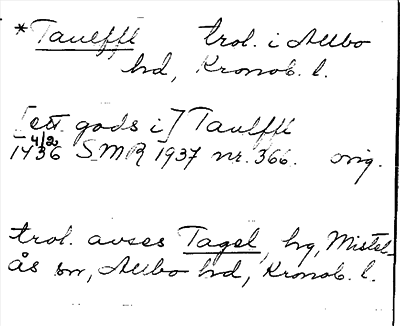 *Taulffl trol. i Allbo
hd, Kronob. l.
[ett gods i] Taulffl
1436 4/2 SMR 1937 nr. 366. orig.
trol. avses Tagel, hg, Mistel-
ås sn, Allbo hd, Kronob. l.